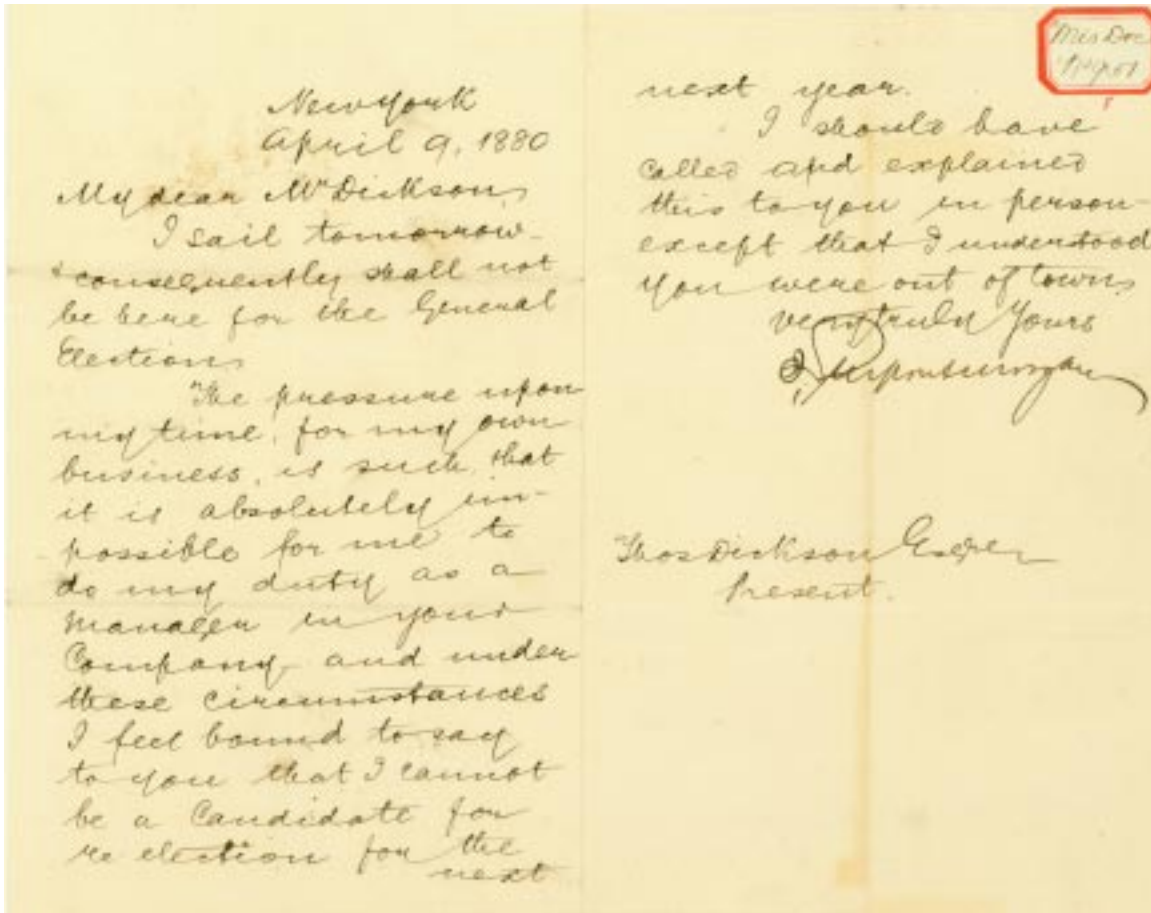 New York
April 9, 1880
My dear Mr Dickson,
I sail tomorrow
& consequently shall not
be here for the General
Election
The pressure upon
my time, for my own
business, is such, that
it is absolutely im-
possible for me to
do my duty as a
Manager in your
Company and under
these circumstances
I feel bound to say
to you that I cannot
be a Candidate for
re election for the
next
next year.
I should have
called and explained
this to you in person
except that I understood
you were out of town
very truly Yours
J. Pierpont Morgan
Thos Dickson Esqre
Present.
Mis Doc